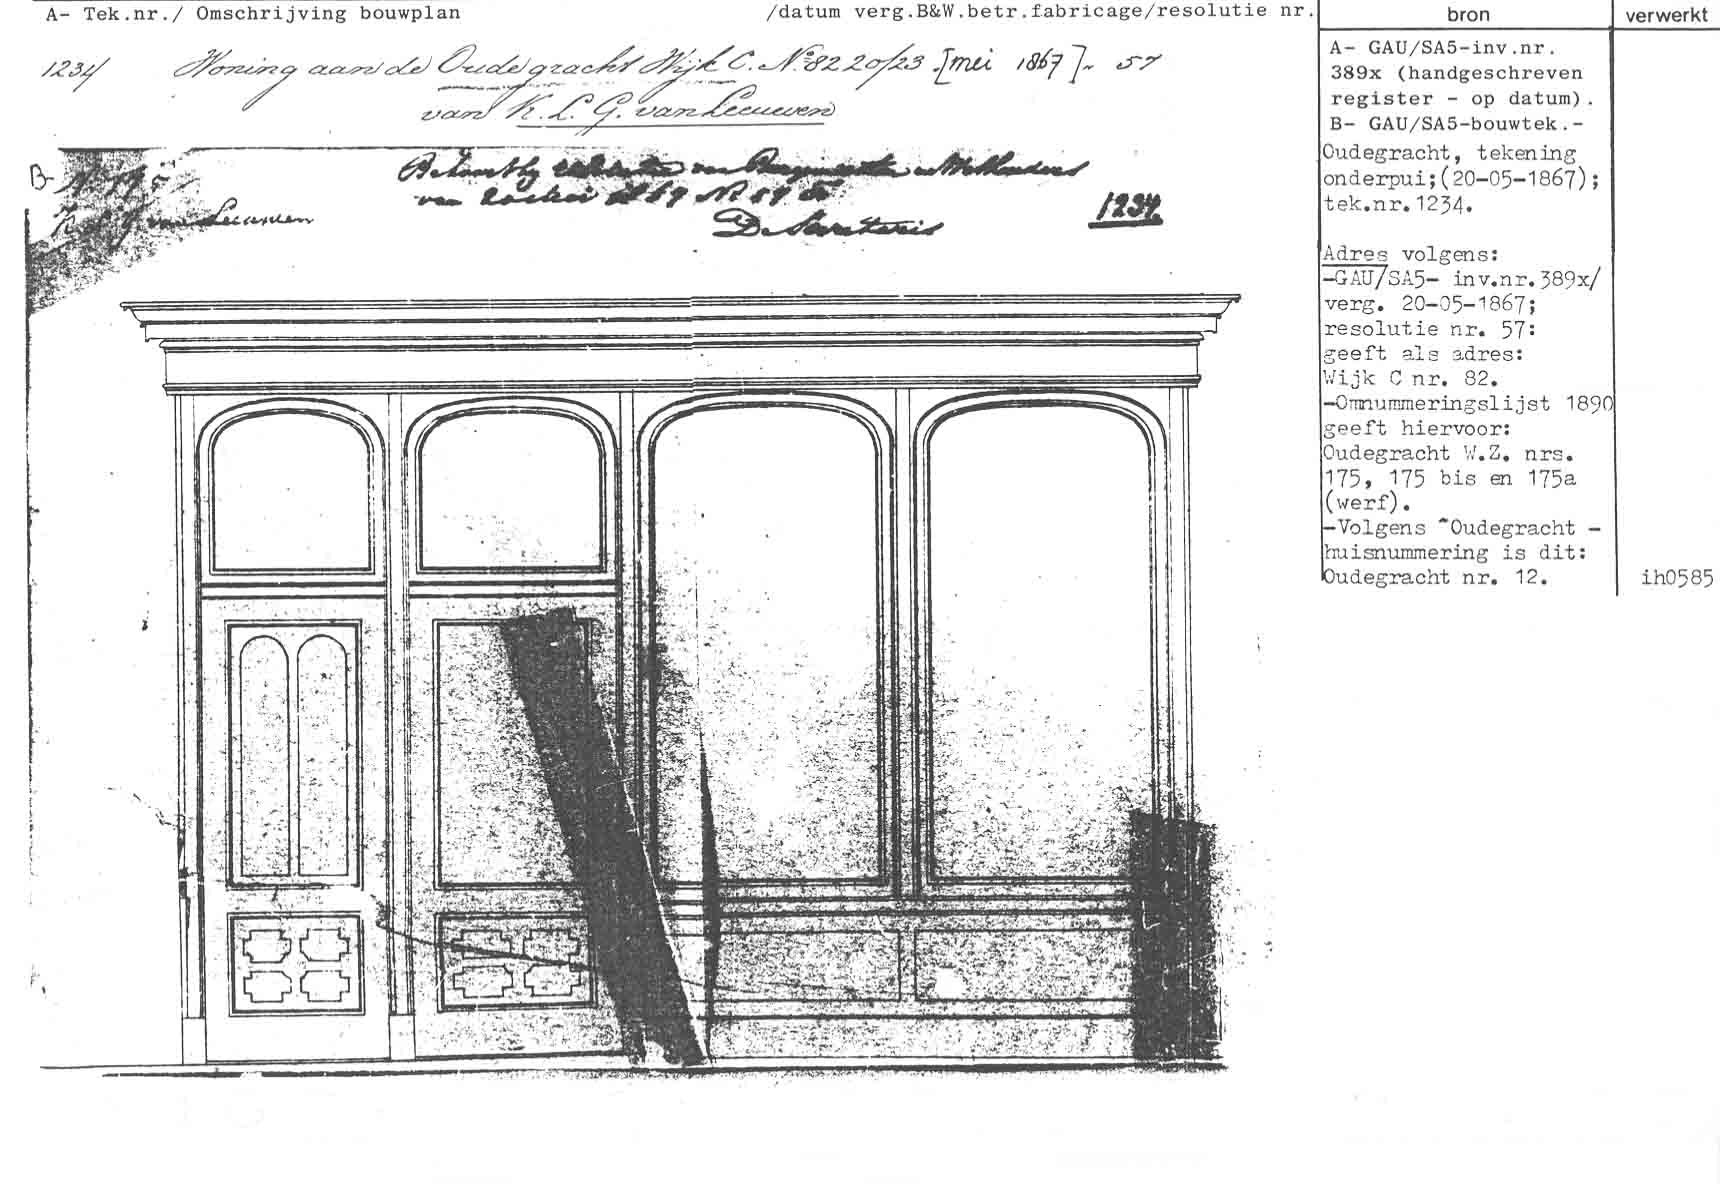 A- Tek.nr./ Omschrijving bouwplan /datum verg.B&W.betr.fabricage/resolutie nr.
1234 Woning aan de Oude gracht Wijk C. No 82 20/23 [mei 1867] 57
van K. L. G. van Leeuwen
B-
van Leeuwen
Behoort bij resolutie van Burgemeester en Wethouders
van
De Secretaris
1234.
bron
A- GAU/SA5-inv.nr.
389x (handgeschreven
register - op datum).
B- GAU/SA5-bouwtek.-
Oudegracht, tekening
onderpui;(20-05-1867);
tek.nr.1234.
Adres volgens:
-GAU/SA5- inv.nr.389x/
verg. 20-05-1867;
resolutie nr. 57:
geeft als adres:
Wijk C nr. 82.
-Omnummeringslijst 1890
geeft hiervoor:
Oudegracht W.Z. nrs.
175, 175 bis en 175a
(werf).
-Volgens "Oudegracht -
huisnummering is dit:
Oudegracht nr. 12.
verwerkt
ih0585